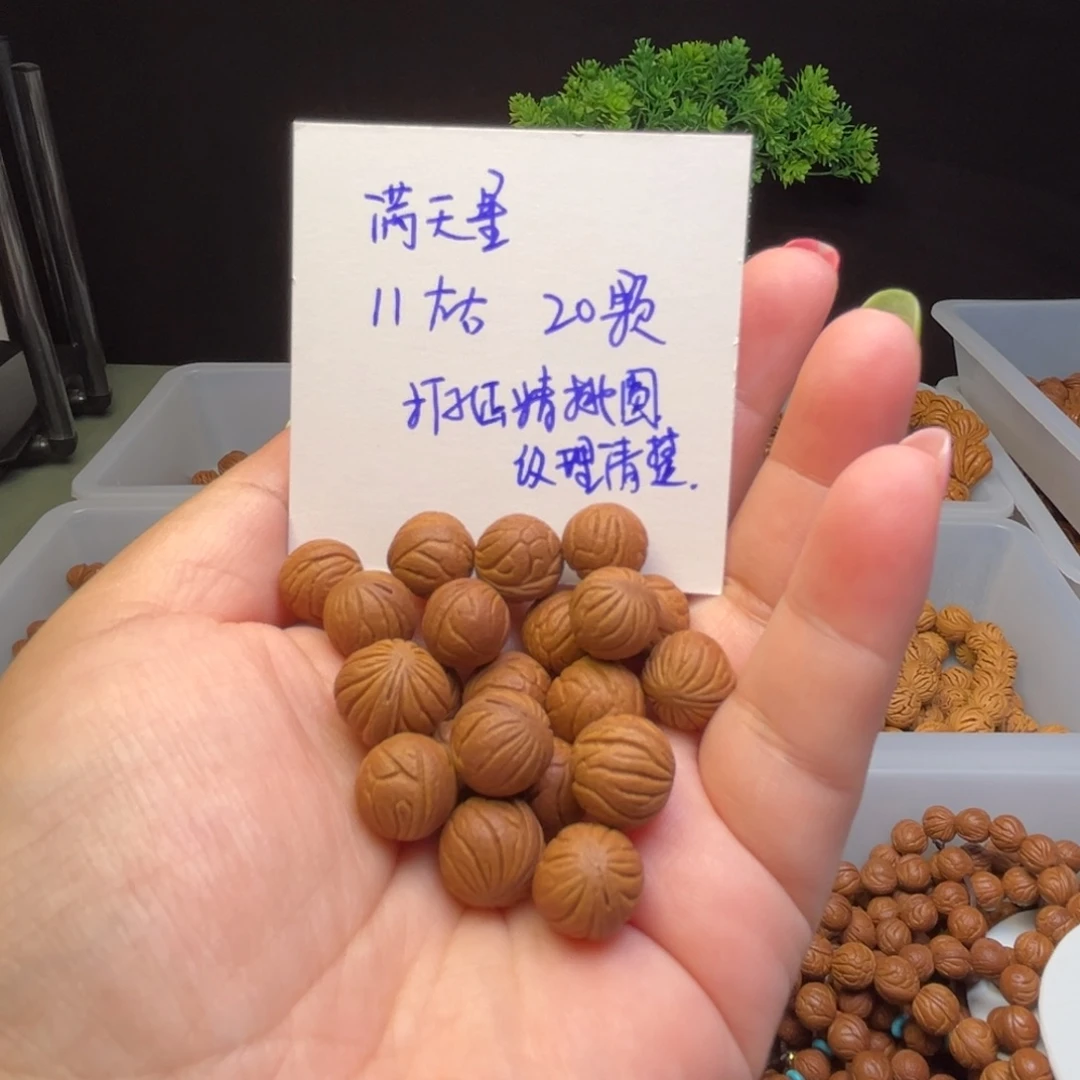 满天星
11左右 20颗
打孔正精挑圆
纹理清楚.